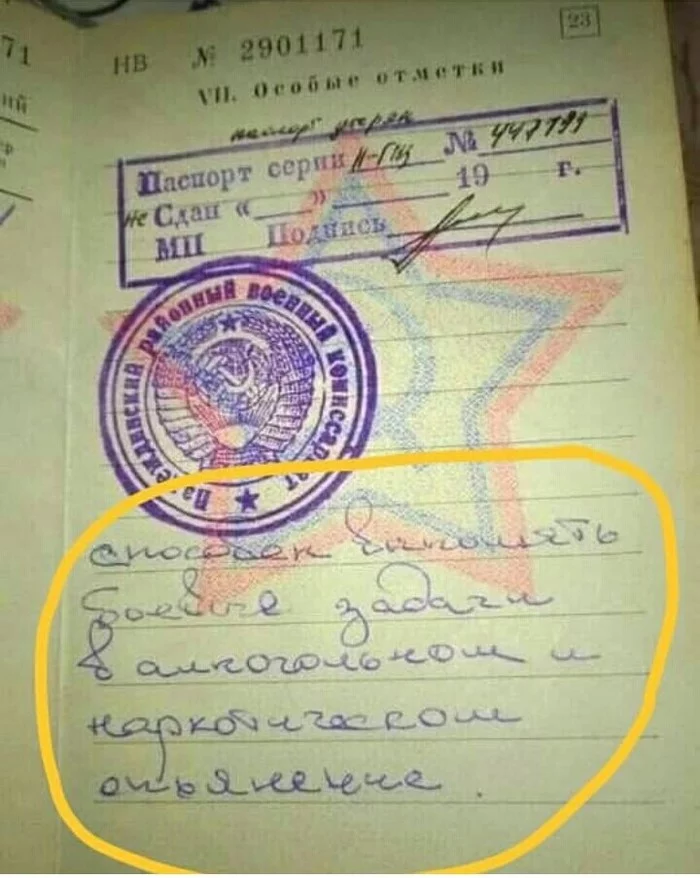 71
ий
НВ № 2901171
23
VII. Особые отметки
паспорт утерян
Паспорт серии II-ГШ № 447199
не Сдан « » 19 г.
МП Подпись
Надеждинский районный военный комиссариат
способен выполнять
боевые задачи
в алкогольном и
наркотическом
опьянение.